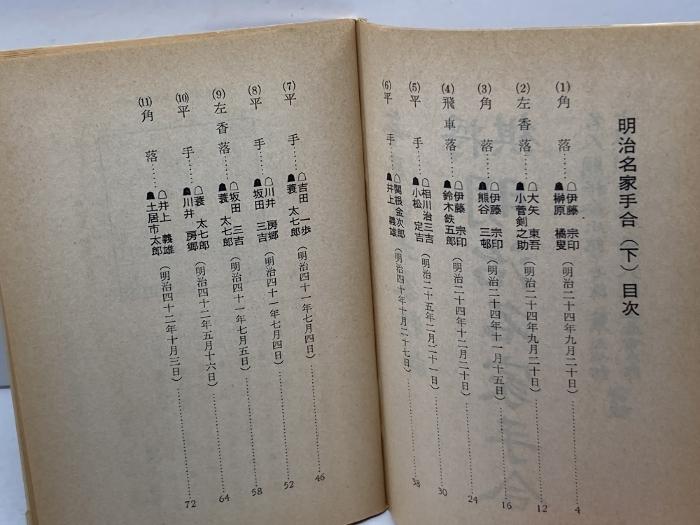 明治名家手合(下)目次
(1)角落……☖伊藤宗印 ☗榊原橘叟(明治二十四年九月二十日)……4
(2)左香落……☖大矢東吾 ☗小菅剣之助(明治二十四年九月二十日)……12
(3)角落……☖伊藤宗印 ☗熊谷三邨(明治二十四年十一月十五日)……16
(4)飛車落……☖伊藤宗印 ☗鈴木鉄五郎(明治二十四年十二月二十日)……24
(5)平手……☖相川治三吉 ☗小松定吉(明治二十五年二月二十一日)……30
(6)平手……☖関根金次郎 ☗井上義雄(明治四十年十月二十七日)……38
(7)平手……☖吉田一歩 ☗蓑太七郎(明治四十一年七月四日)……46
(8)平手……☖川井房郷 ☗坂田三吉(明治四十一年七月四日)……52
(9)左香落……☖坂田三吉 ☗蓑太七郎(明治四十一年七月五日)……58
(10)平手……☖蓑太七郎 ☗川井房郷(明治四十二年五月十六日)……64
(11)角落……☖井上義雄 ☗土居市太郎(明治四十二年十月三日)……72